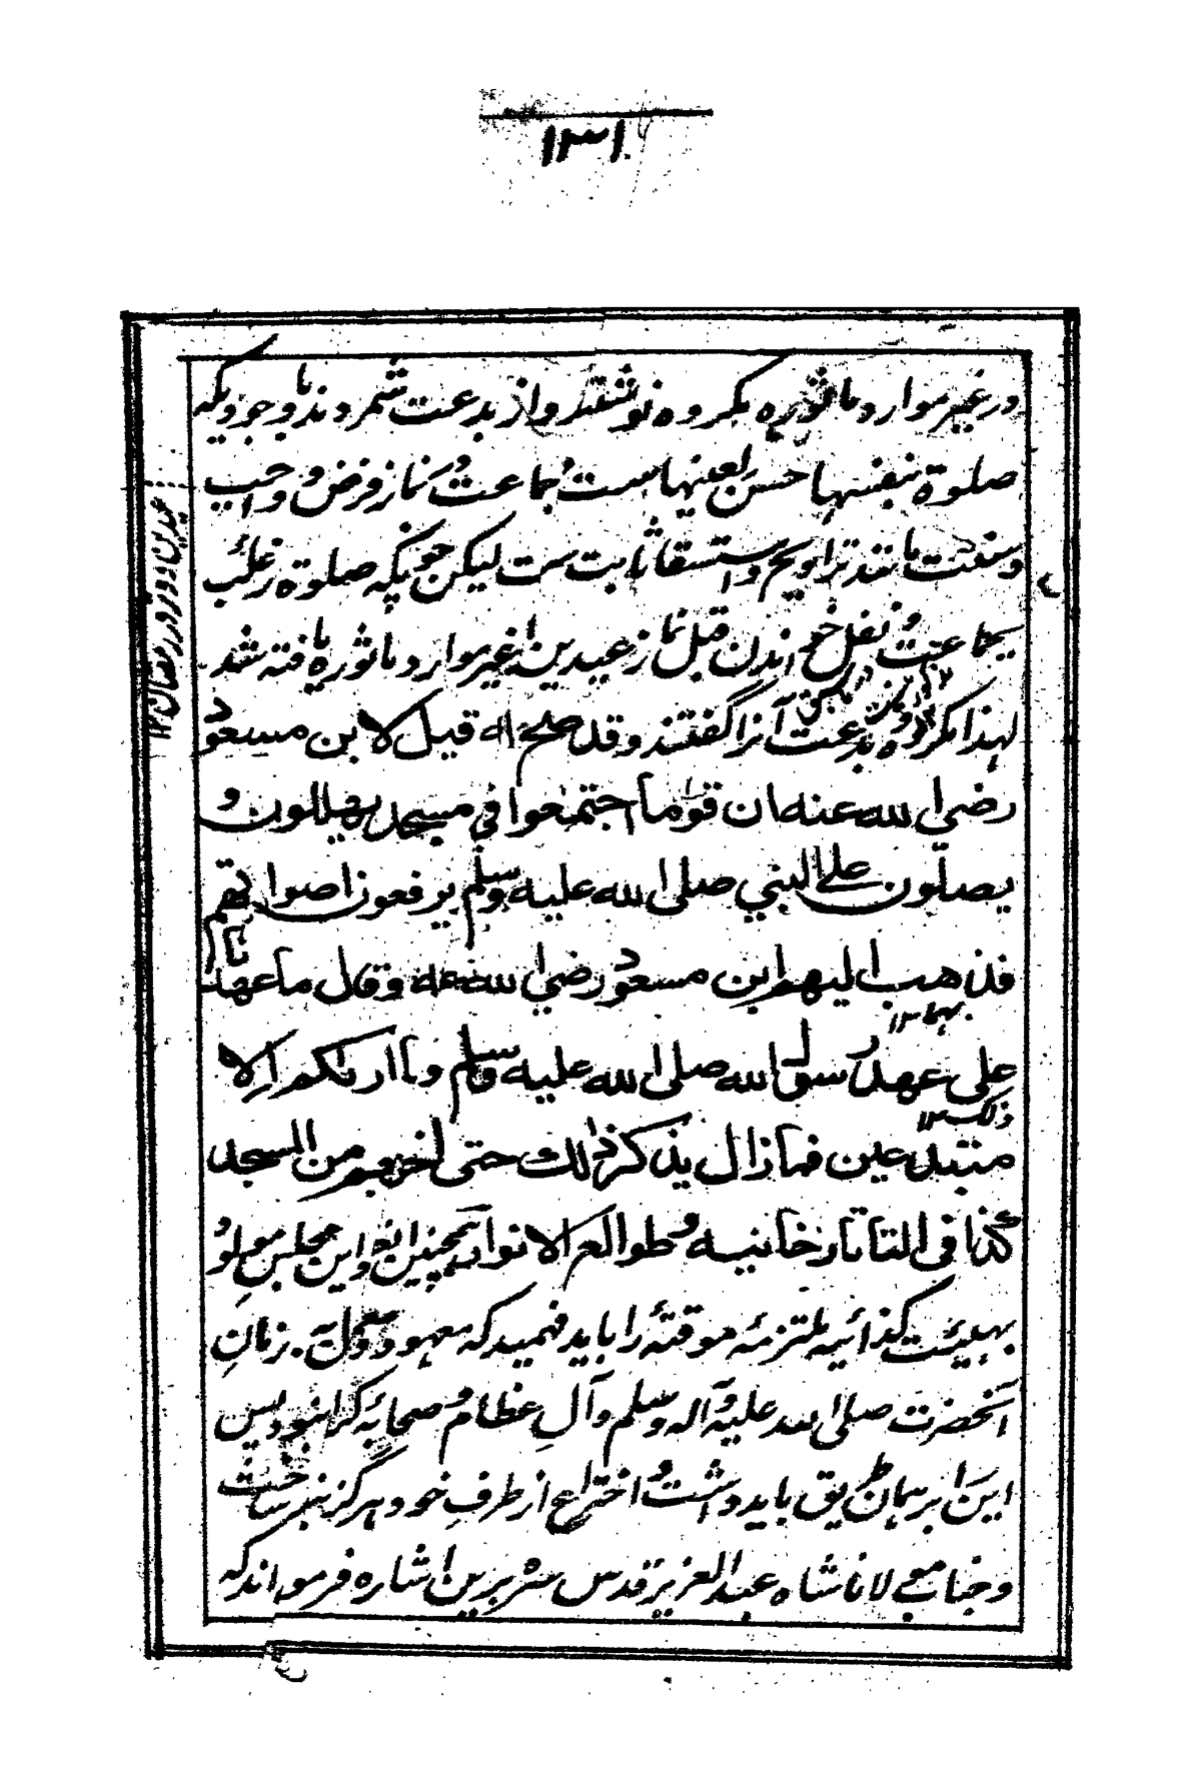 ١٣١
در غیر موارد ماثوره مکروہ نوشتند و از بدعت شمردند با وجودیکه
صلوة بنفسها حسن لعینها ست و جماعت و نماز فرض و واجب
و سنت مانند تراویح و استسقا ثابت ست لیکن چونکه صلوة رغائب
بجماعت و نفل خواندن قبل نماز عیدین از غیر موارد ماثوره یافته شد
لهذا مکروه و بدعت آنرا گفتند وقد صح انه قيل لابن مسعود
رضي الله عنه ان قوما اجتمعوا في مسجد يهللون و
يصلون على النبي صلى الله عليه وسلم يرفعون اصواتهم
فذهب اليهم ابن مسعود رضي الله عنه وقال ما عهدنا
على عهد رسول الله صلى الله عليه وسلم وما اراكم الا
مبتدعين فما زال يذكر ذلك حتى اخرجهم من المسجد
كذا في التتارخانيه و طوالع الانوار همچنین این مجلس مولود
بهیئت کذائیه ملتزمه موقته را باید فهمید که معهود و معمول به زمانِ
آنحضرت صلى الله عليه و آله وسلم و آلِ عظام و صحابهٔ کرام نبود پس
این را بر همان طریق باید داشت و اختراع از طرفِ خود هرگز نباید ساخت
و جناب مولانا شاه عبد العزیز قدس سره برین اشاره فرموده اند که